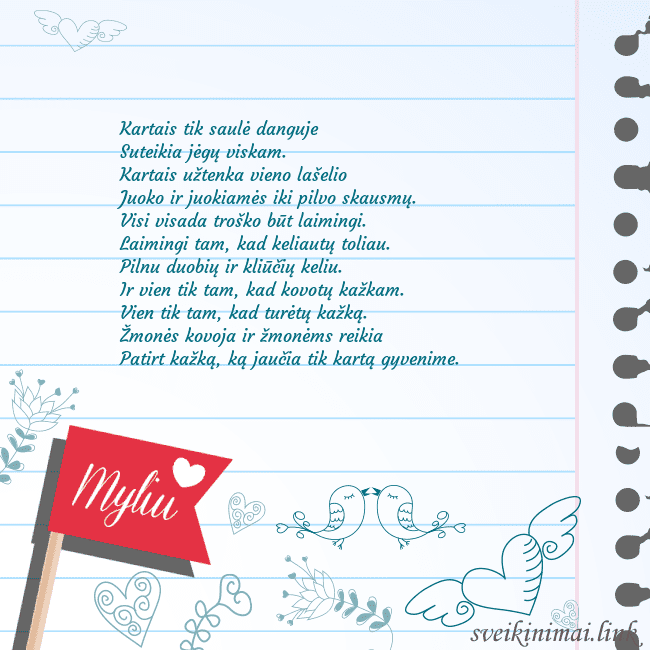 Kartais tik saulė danguje
Suteikia jėgų viskam.
Kartais užtenka vieno lašelio
Juoko ir juokiamės iki pilvo skausmų.
Visi visada troško būt laimingi.
Laimingi tam, kad keliautų toliau.
Pilnu duobių ir kliūčių keliu.
Ir vien tik tam, kad kovotų kažkam.
Vien tik tam, kad turėtų kažką.
Žmonės kovoja ir žmonėms reikia
Patirt kažką, ką jaučia tik kartą gyvenime.
Myliu
sveikinimai.link